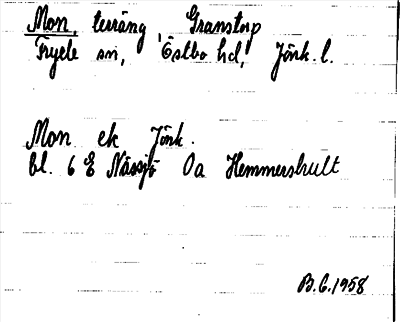 Mon, terräng, Granstorp
Fryele sn, Östbo hd, Jönk. l.
Mon ek Jönk.
bl. 6 E Nässjö Oa Hemmershult
B.G. 1958